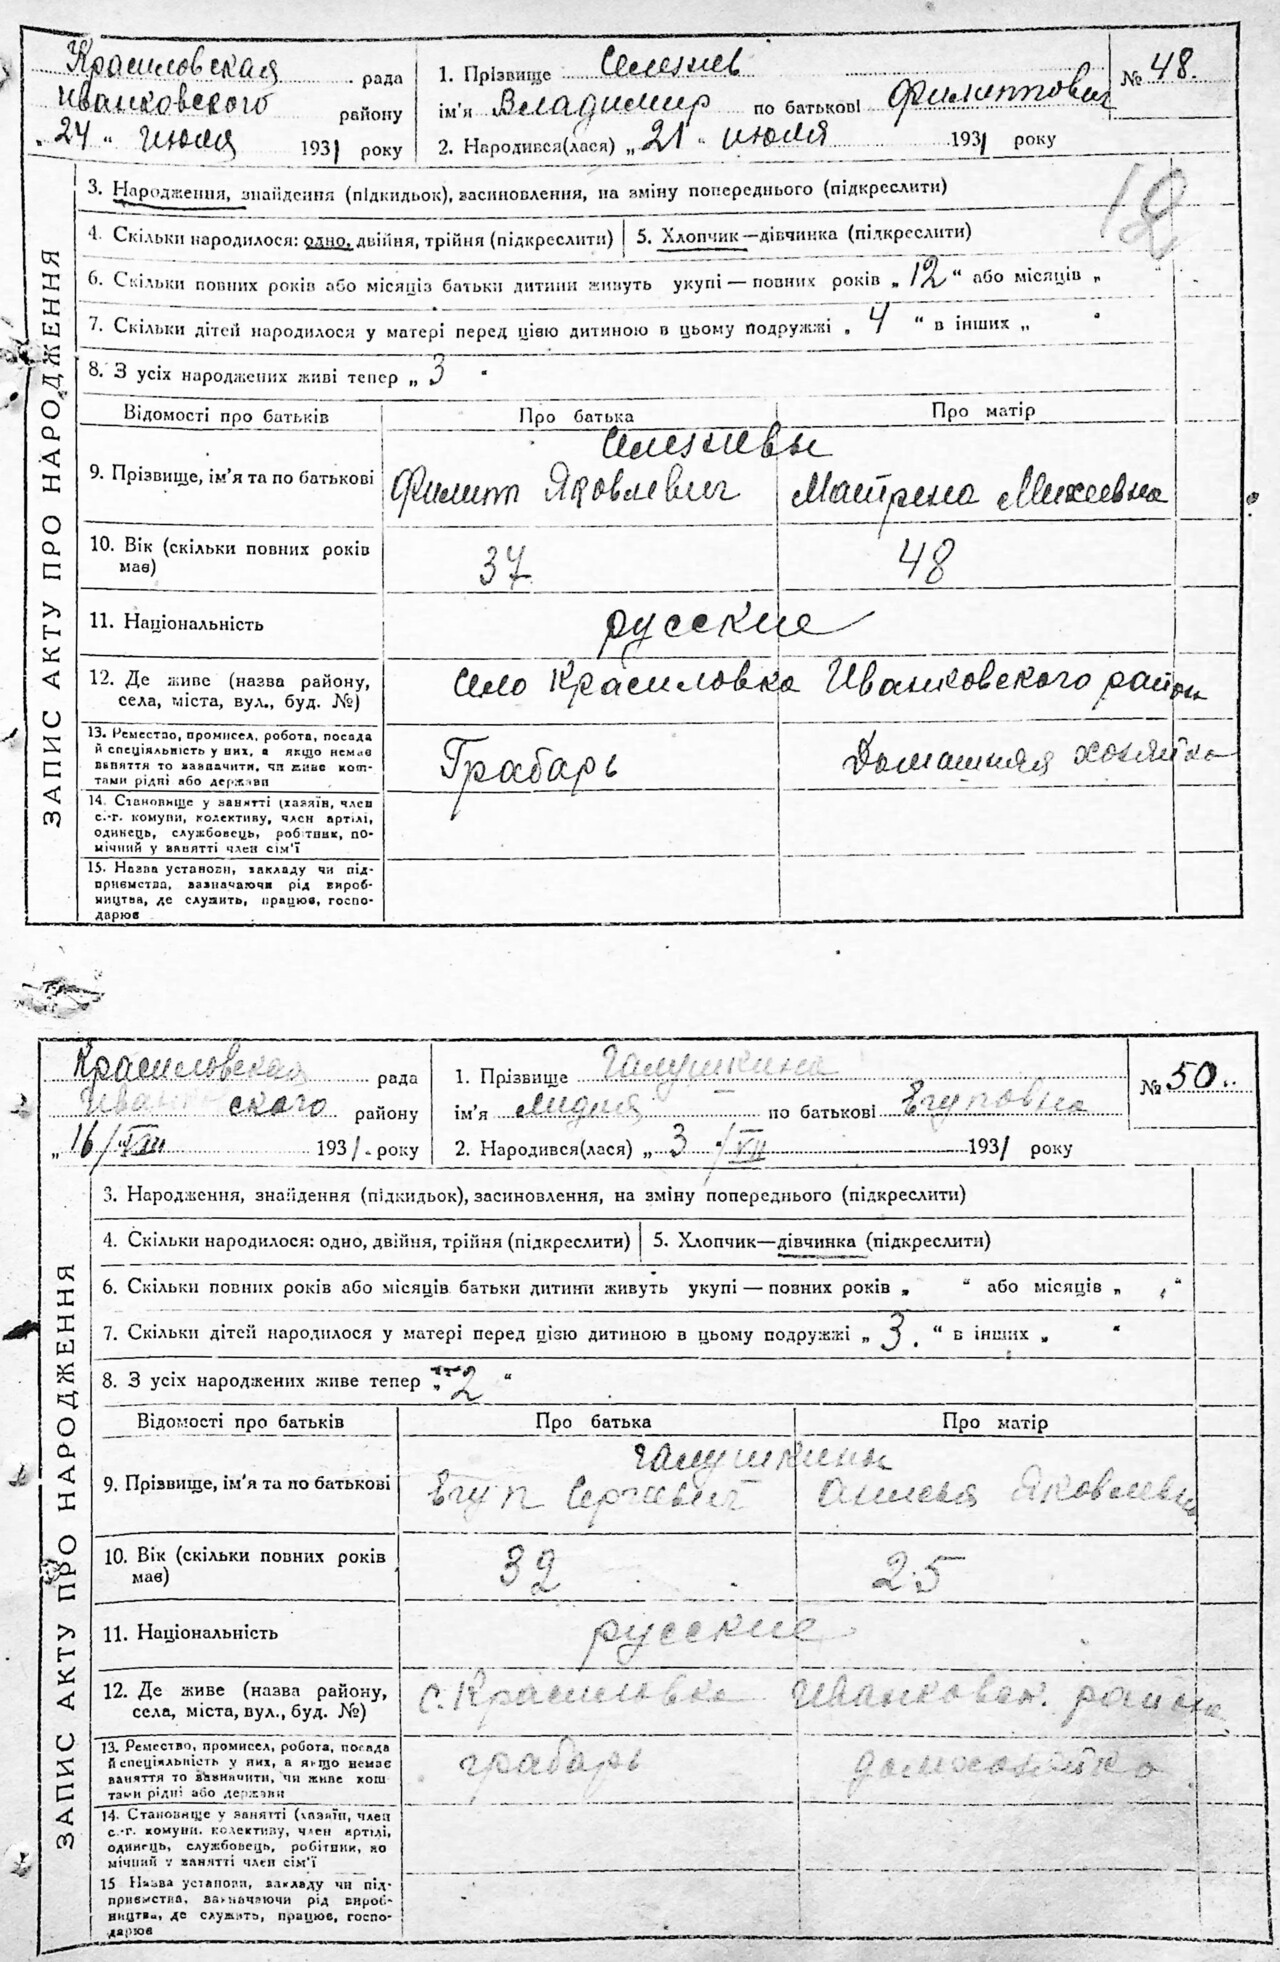 Красиловская рада
Иванковского району
„24“ июля 1931 року
1. Прізвище Селезнев
ім'я Владимир по батькові Филиппович
2. Народився(лася) „21“ июля 1931 року
№ 48.
12
ЗАПИС АКТУ ПРО НАРОДЖЕННЯ
3. Народження, знайдення (підкидьок), засиновлення, на зміну попереднього (підкреслити)
4. Скільки народилося: одно, двійня, трійня (підкреслити) 5. Хлопчик—дівчинка (підкреслити)
6. Скільки повних років або місяців батьки дитини живуть укупі — повних років „12“ або місяців „ “
7. Скільки дітей народилося у матері перед цією дитиною в цьому подружжі „4“ в інших „ “
8. З усіх народжених живі тепер „3“
Відомості про батьків Про батька Про матір
Селезневы
9. Прізвище, ім'я та по батькові Филипп Яковлевич Матрена Михеевна
10. Вік (скільки повних років має) 37 48
11. Національність русские
12. Де живе (назва району, села, міста, вул., буд. №) Село Красиловка Иванковского район
13. Ремество, промисел, робота, посада
й спеціяльність у них, а якщо немає
заняття то зазначити, чи живе кош-
тами рідні або держави
Грабарь Домашняя хозяйка
14. Становище у занятті (хазяїн, член
с.-г. комуни, колективу, член артілі,
одинець, службовець, робітник, по-
мічний у занятті член сім'ї
15. Назва установи, закладу чи під-
приємства, зазначаючи рід вироб-
ництва, де служить, працює, госпо-
дарює
Красиловская рада
Иванковского району
„16/VIII 1931 року
1. Прізвище Галушкина
ім'я Лидия по батькові Егуповна
2. Народився(лася) „3“/VII 1931 року
№ 50..
ЗАПИС АКТУ ПРО НАРОДЖЕННЯ
3. Народження, знайдення (підкидьок), засиновлення, на зміну попереднього (підкреслити)
4. Скільки народилося: одно, двійня, трійня (підкреслити) 5. Хлопчик—дівчинка (підкреслити)
6. Скільки повних років або місяців батьки дитини живуть укупі — повних років „ “ або місяців „ “
7. Скільки дітей народилося у матері перед цією дитиною в цьому подружжі „3.“ в інших „ “
8. З усіх народжених живе тепер „2“
Відомості про батьків Про батька Про матір
Галушкины
9. Прізвище, ім'я та по батькові Егуп Сергиевич Анисья Яковлевна
10. Вік (скільки повних років має) 32 25
11. Національність русские
12. Де живе (назва району, села, міста, вул., буд. №) с. Красиловка Иванковск. района
13. Ремество, промисел, робота, посада
й спеціяльність у них, а якщо немає
заняття то зазначити, чи живе кош
тами рідні або держави
грабарь домхозяйка
14. Становище у занятті (хазяїн, член
с.-г. комуни, колективу, член артілі,
одинець, службовець, робітник, по
мічний у занятті член сім'ї
15 Назва установи, закладу чи під-
приємства, зазначаючи рід вироб-
ництва, де служить, працює, госпо-
дарює